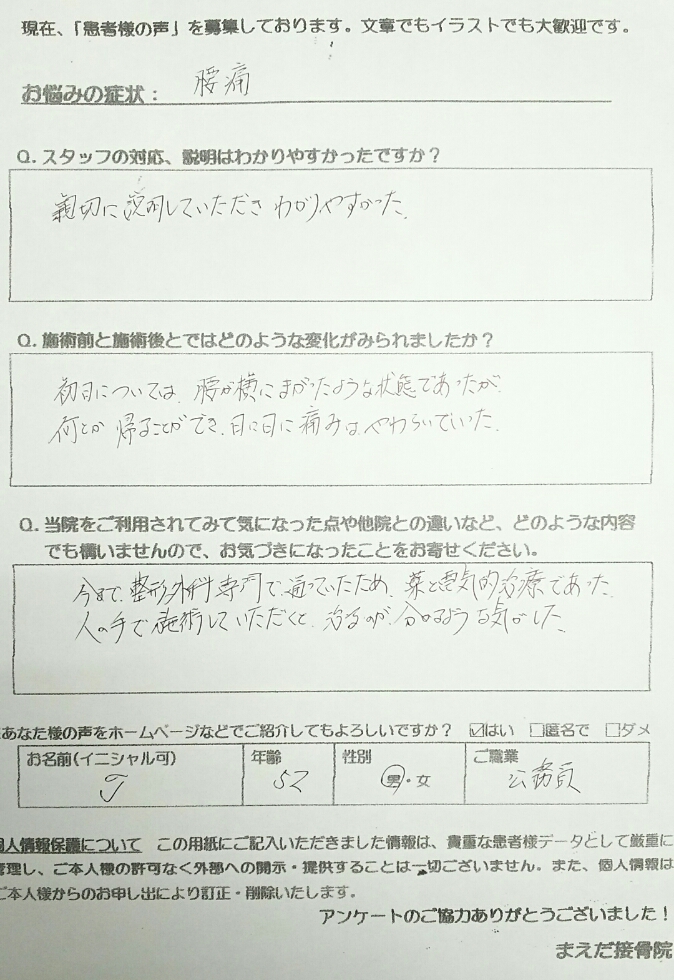 現在、「患者様の声」を募集しております。文章でもイラストでも大歓迎です。
お悩みの症状： 腰痛
Q. スタッフの対応、説明はわかりやすかったですか？
親切に説明していただき わかりやすかった。
Q. 施術前と施術後とではどのような変化がみられましたか？
初日については、腰が横にまがったような状態であったが
何とか 帰ることができ、日に日に痛みは、やわらいでいった。
Q. 当院をご利用されてみて気になった点や他院との違いなど、どのような内容
でも構いませんので、お気づきになったことをお寄せください。
今まで、整形外科専門で通っていたため、薬と電気的治療であった。
人の手で施術していただくと、治るのが、分かるような気がした。
あなた様の声をホームページなどでご紹介してもよろしいですか？ ☑はい □匿名で □ダメ
お名前(イニシャル可) 年齢 性別 ご職業
52 男・女 公務員
個人情報保護について この用紙にご記入いただきました情報は、貴重な患者様データとして厳重に
管理し、ご本人様の許可なく外部への開示・提供することは一切ございません。また、個人情報は
ご本人様からのお申し出により訂正・削除いたします。
アンケートのご協力ありがとうございました！
まえだ接骨院